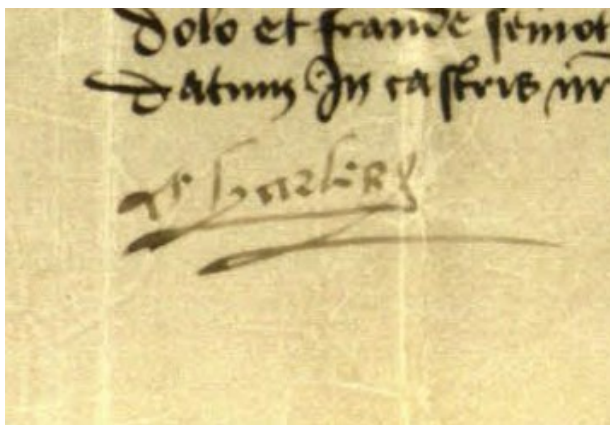 dolo et fraude semot
datum In castris nr
Charles